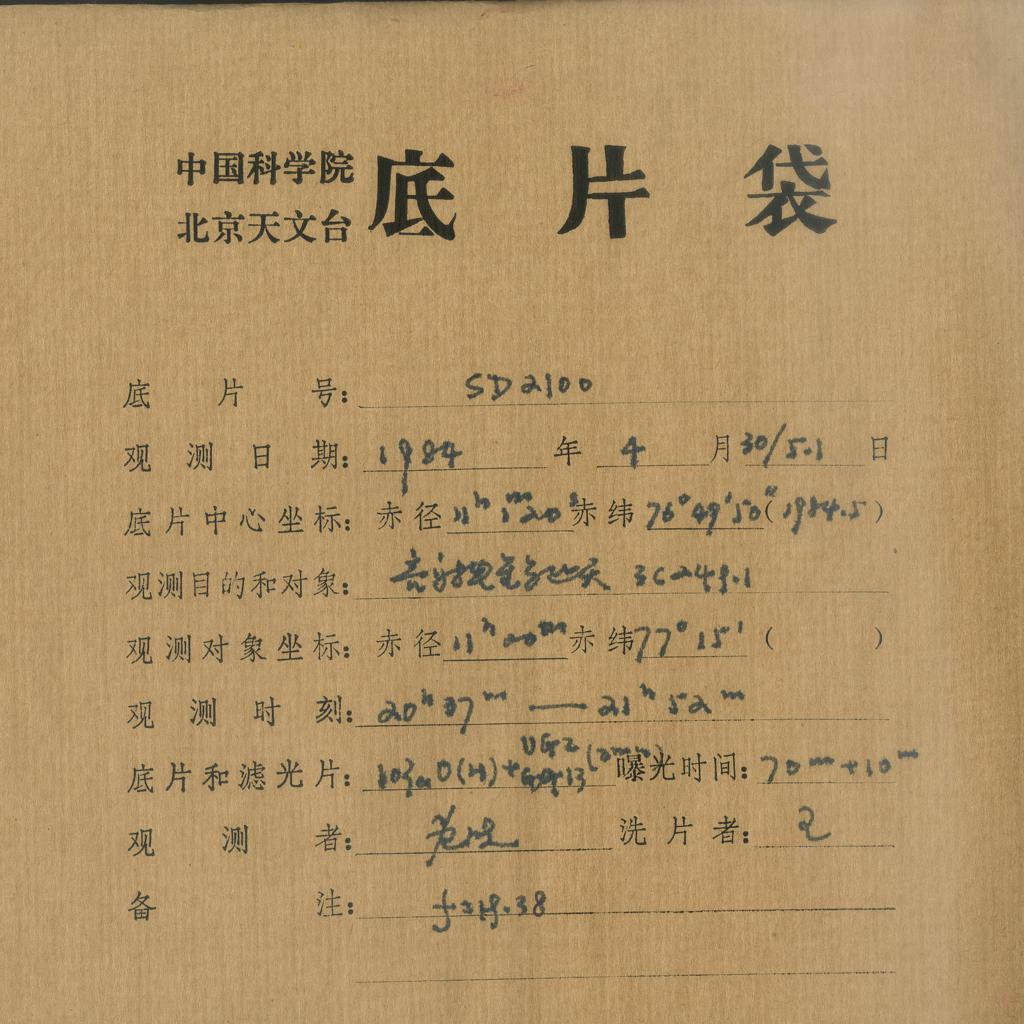 中国科学院
北京天文台
底片袋
底片号： SD2100
观测日期： 1984 年 4 月 30/5.1 日
底片中心坐标： 赤径 11ʰ 1ᵐ20ˢ 赤纬 76°49′50″ (1984.5)
观测目的和对象： 3C249.1
观测对象坐标： 赤径 11ʰ 00ᵐ 赤纬 77°15′ ( )
观测时刻： 20ʰ 37ᵐ — 21ʰ 52ᵐ
底片和滤光片： 103aO(H)+ UG2 GG13 (2mm) 曝光时间： 70ᵐ+10ᵐ
观测者： 洗片者： 王
备注： f=19.38